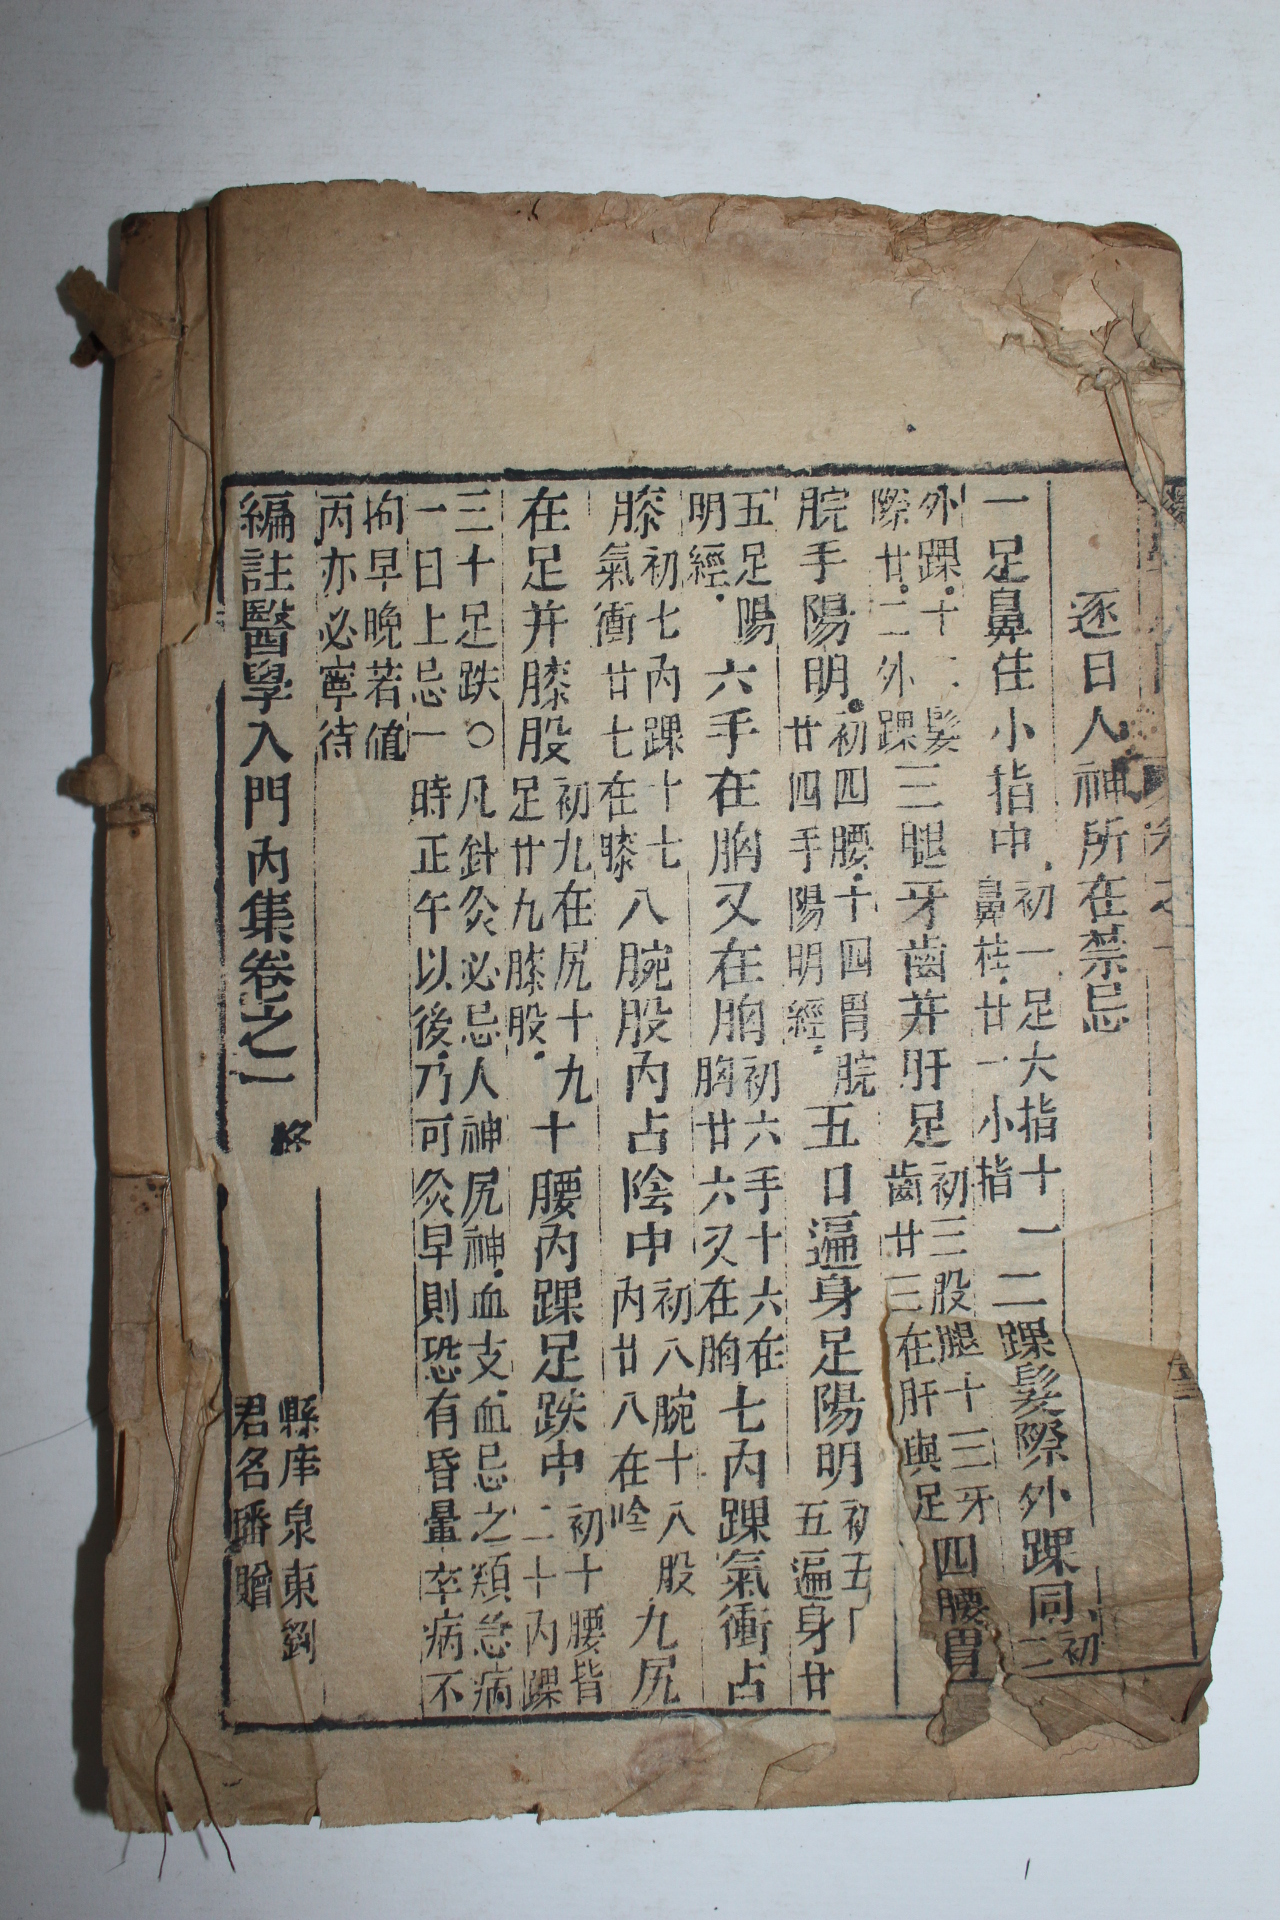 逐日人神所在禁忌
一足鼻住小指中初一足大指十一鼻柱廿一小指二踝髮際外踝同初二
外踝十二髮際廿二外踝三腿牙齒并肝足初三股腿十三牙齒廿三在肝與足四腰胃
脘手陽明初四腰十四胃脘廿四手陽明經五口遍身足陽明初五口五遍身廿
五足陽明經六手在胸又在胸初六手十六在胸廿六又在胸七內踝氣衝占
膝初七內踝十七氣衝廿七在膝八腕股內占陰中初八腕十八股內廿八在陰九尻
在足并膝股初九在尻十九足廿九膝股十腰內踝足趺中初十腰背二十內踝
三十足趺〇凡針灸必忌人神尻神血支血忌之類急病
一日上忌一時正午以後乃可灸早則恐有昏暈卒病不
拘早晚若値
丙亦必寧待
編註醫學入門內集卷之一 終
縣庠泉東劉
君名璠贈